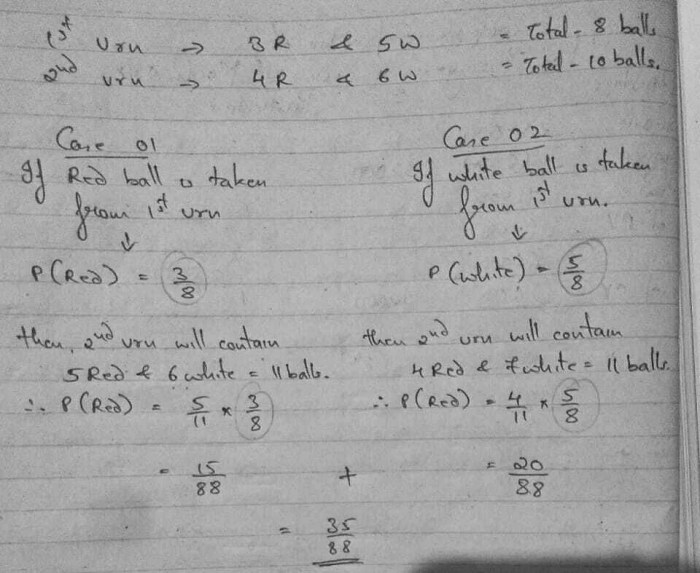 1st Urn → 3R & 5W = Total - 8 balls
2nd urn → 4R & 6W = Total - 10 balls.
Case 01
If Red ball is taken
from 1st urn
↓
P(Red) = 3/8
then, 2nd urn will contain
5 Red & 6 white = 11 balls.
∴ P(Red) = 5/11 * 3/8
= 15/88
Case 02
If white ball is taken
from 1st urn.
↓
P(white) = 5/8
then 2nd urn will contain
4 Red & 7 white = 11 balls.
∴ P(Red) = 4/11 * 5/8
= 20/88
+
= 35/88